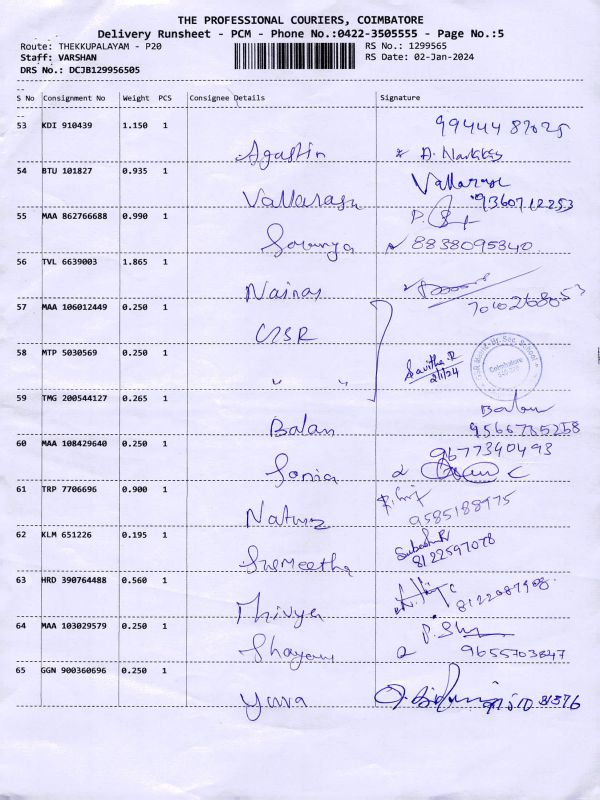 THE PROFESSIONAL COURIERS, COIMBATORE
Delivery Runsheet - PCM - Phone No.:0422-3505555 - Page No.:5
Route: THEKKUPALAYAM - P20 RS No.: 1299565
Staff: VARSHAN RS Date: 02-Jan-2024
DRS No.: DCJB129956505
S No Consignment No Weight PCS Consignee Details Signature
53 KDI 910439 1.150 1
Agastin
54 BTU 101827 0.935 1 Vallarasu
Vallarasu 9360712253
55 MAA 862766688 0.990 1
Sowmya 8838095840
56 TVL 6639003 1.865 1
Nainas
57 MAA 106012449 0.250 1
GSR
58 MTP 5030569 0.250 1 Savitha.R
" " 2/1/24
59 TMG 200544127 0.265 1 Balan
Balan 9566765258
60 MAA 108429640 0.250 1 9677340493
Sonia
61 TRP 7706696 0.900 1
9585188975
62 KLM 651226 0.195 1 Subash R
Susmeetha 8122597078
63 HRD 390764488 0.560 1
Thivya
64 MAA 103029579 0.250 1
9655703847
65 GGN 900360696 0.250 1
Yuva